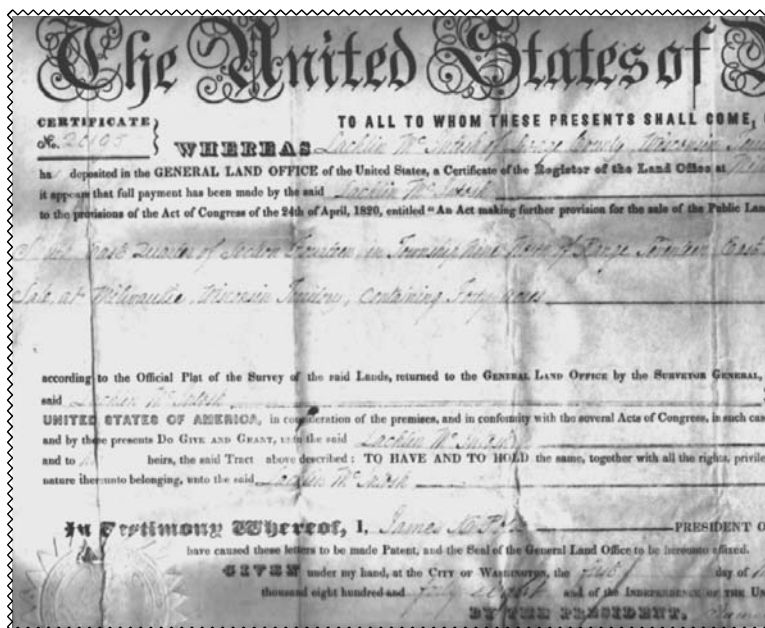 The United States of
CERTIFICATE
No. 20195
TO ALL TO WHOM THESE PRESENTS SHALL COME,
WHEREAS Lachlin Mc Intosh of Dodge County, Wisconsin
ha deposited in the GENERAL LAND OFFICE of the United States, a Certificate of the Register of the Land Office at
it appears that full payment has been made by the said Lachlin Mc Intosh
to the provisions of the Act of Congress of the 24th of April, 1820, entitled "An Act making further provision for the sale of the Public
East Quarter of Section Fourteen in Township Nine North of Range Seventeen East
Sale at Milwaukee, Wisconsin Territory, Containing Forty acres
according to the Official Plat of the Survey of the said Lands, returned to the GENERAL LAND OFFICE by the SURVEYOR GENERAL,
said Lachlin Mc Intosh
UNITED STATES OF AMERICA, in consideration of the premises, and in conformity with the several Acts of Congress, in such
and by these presents DO GIVE AND GRANT, unto the said Lachlin Mc Intosh
and to heirs, the said Tract above described: TO HAVE AND TO HOLD the same, together with all the rights,
nature thereunto belonging, unto the said Lachlin Mc Intosh
In Testimony Whereof, I, James K. Polk PRESIDENT O
have caused these letters to be made Patent, and the Seal of the General Land Office to be hereunto affixed.
GIVEN under my hand, at the CITY OF WASHINGTON, the first day of
thousand eight hundred and forty eight and of the INDEPENDENCE OF THE
BY THE PRESIDENT,